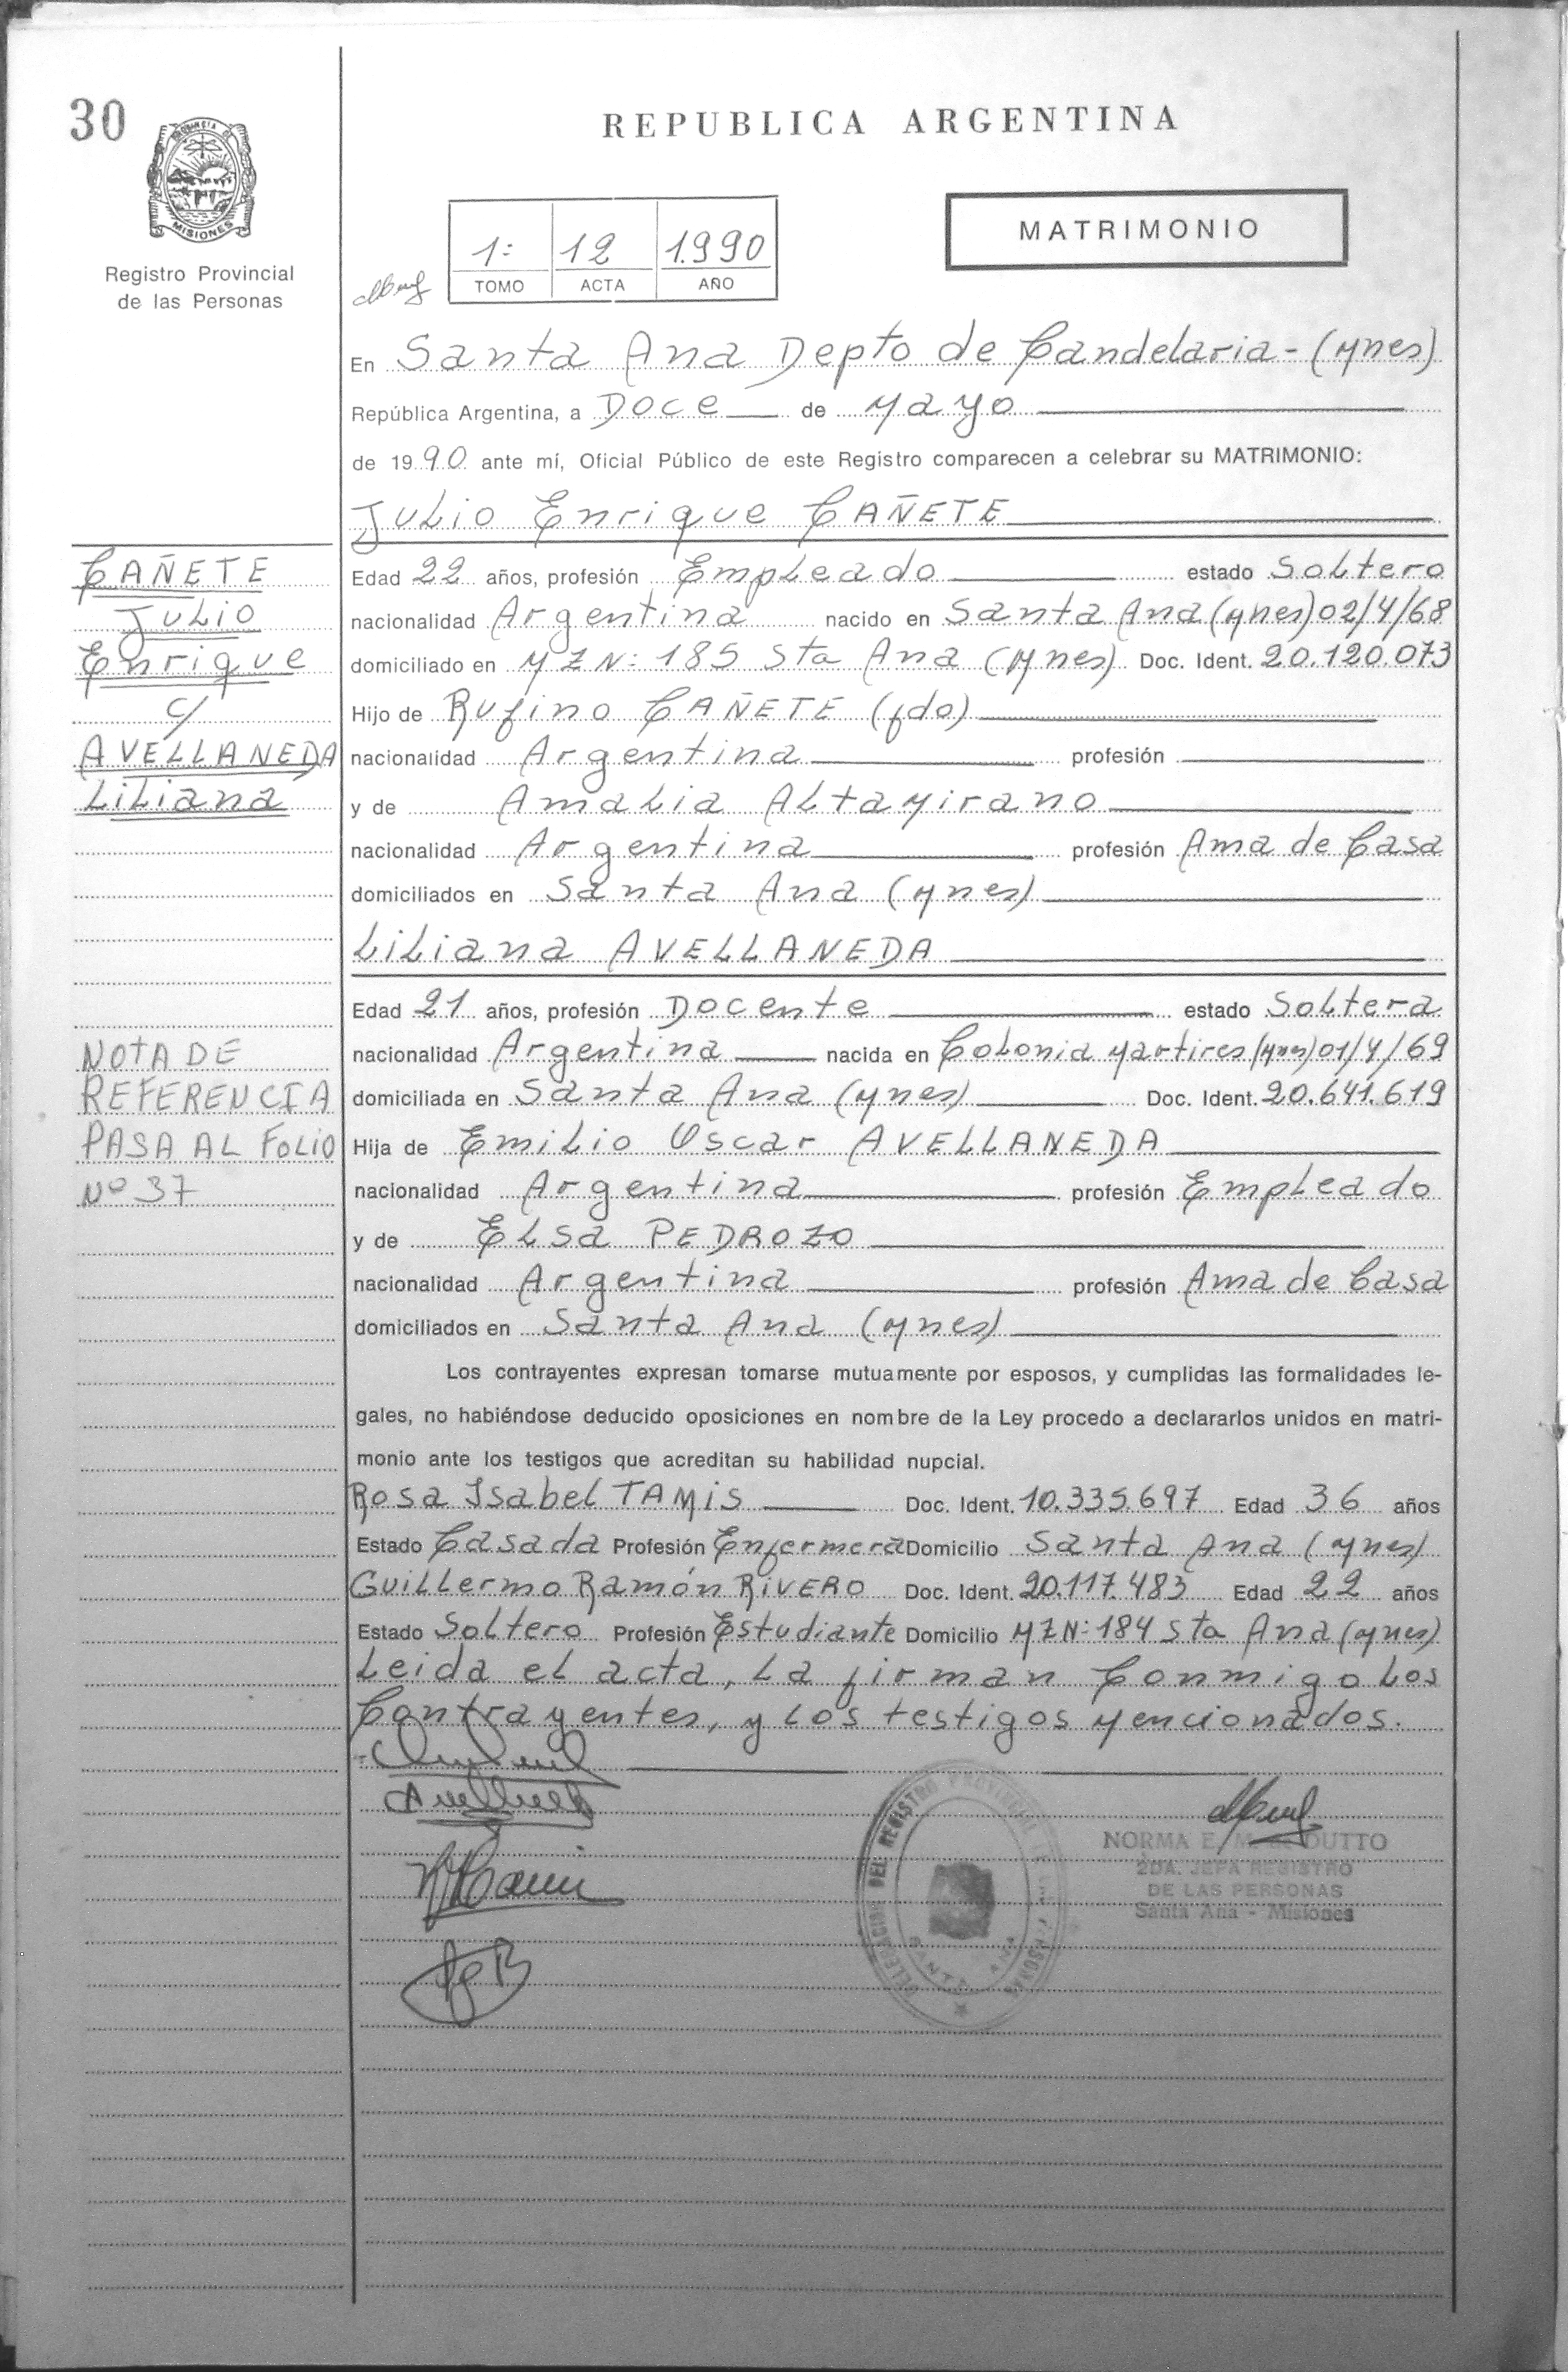 30
REPUBLICA ARGENTINA
PROVINCIA DE
MISIONES
Registro Provincial
de las Personas
1: 12 1.990
TOMO ACTA AÑO
MATRIMONIO
En Santa Ana Depto de Candelaria - (Mnes)
República Argentina, a Doce de Mayo
de 1990 ante mí, Oficial Público de este Registro comparecen a celebrar su MATRIMONIO:
Julio Enrique CAÑETE
CAÑETE
Julio
Enrique
c/
AVELLANEDA
Liliana
Edad 22 años, profesión Empleado estado Soltero
nacionalidad Argentina nacido en Santa Ana (Mnes) 02/4/68
domiciliado en MZ N: 185 Sta Ana (Mnes) Doc. Ident. 20.120.073
Hijo de Rufino CAÑETE (fdo)
nacionalidad Argentina profesión
y de Amalia Altamirano
nacionalidad Argentina profesión Ama de Casa
domiciliados en Santa Ana (Mnes)
Liliana AVELLANEDA
Edad 21 años, profesión Docente estado Soltera
nacionalidad Argentina nacida en Colonia Martires (Mnes) 01/4/69
domiciliada en Santa Ana (Mnes) Doc. Ident. 20.641.619
Hija de Emilio Oscar AVELLANEDA
nacionalidad Argentina profesión Empleado
y de Elsa PEDROZO
nacionalidad Argentina profesión Ama de Casa
domiciliados en Santa Ana (Mnes)
NOTA DE
REFERENCIA
PASA AL FOLIO
Nº 37
Los contrayentes expresan tomarse mutuamente por esposos, y cumplidas las formalidades le-
gales, no habiéndose deducido oposiciones en nombre de la Ley procedo a declararlos unidos en matri-
monio ante los testigos que acreditan su habilidad nupcial.
Rosa Isabel TAMIS Doc. Ident. 10.335.697 Edad 36 años
Estado Casada Profesión Enfermera Domicilio Santa Ana (Mnes)
Guillermo Ramón RIVERO Doc. Ident. 20.117.483 Edad 22 años
Estado Soltero Profesión Estudiante Domicilio MZ N: 184 Sta Ana (Mnes)
Leida el acta, la firman Conmigo los
Contrayentes, y los testigos Mencionados.
DELEGACION DEL REGISTRO PROVINCIAL DE LAS PERSONAS
SANTA ANA
NORMA E.
2DA. JEFA REGISTRO
DE LAS PERSONAS
Santa Ana - Misiones